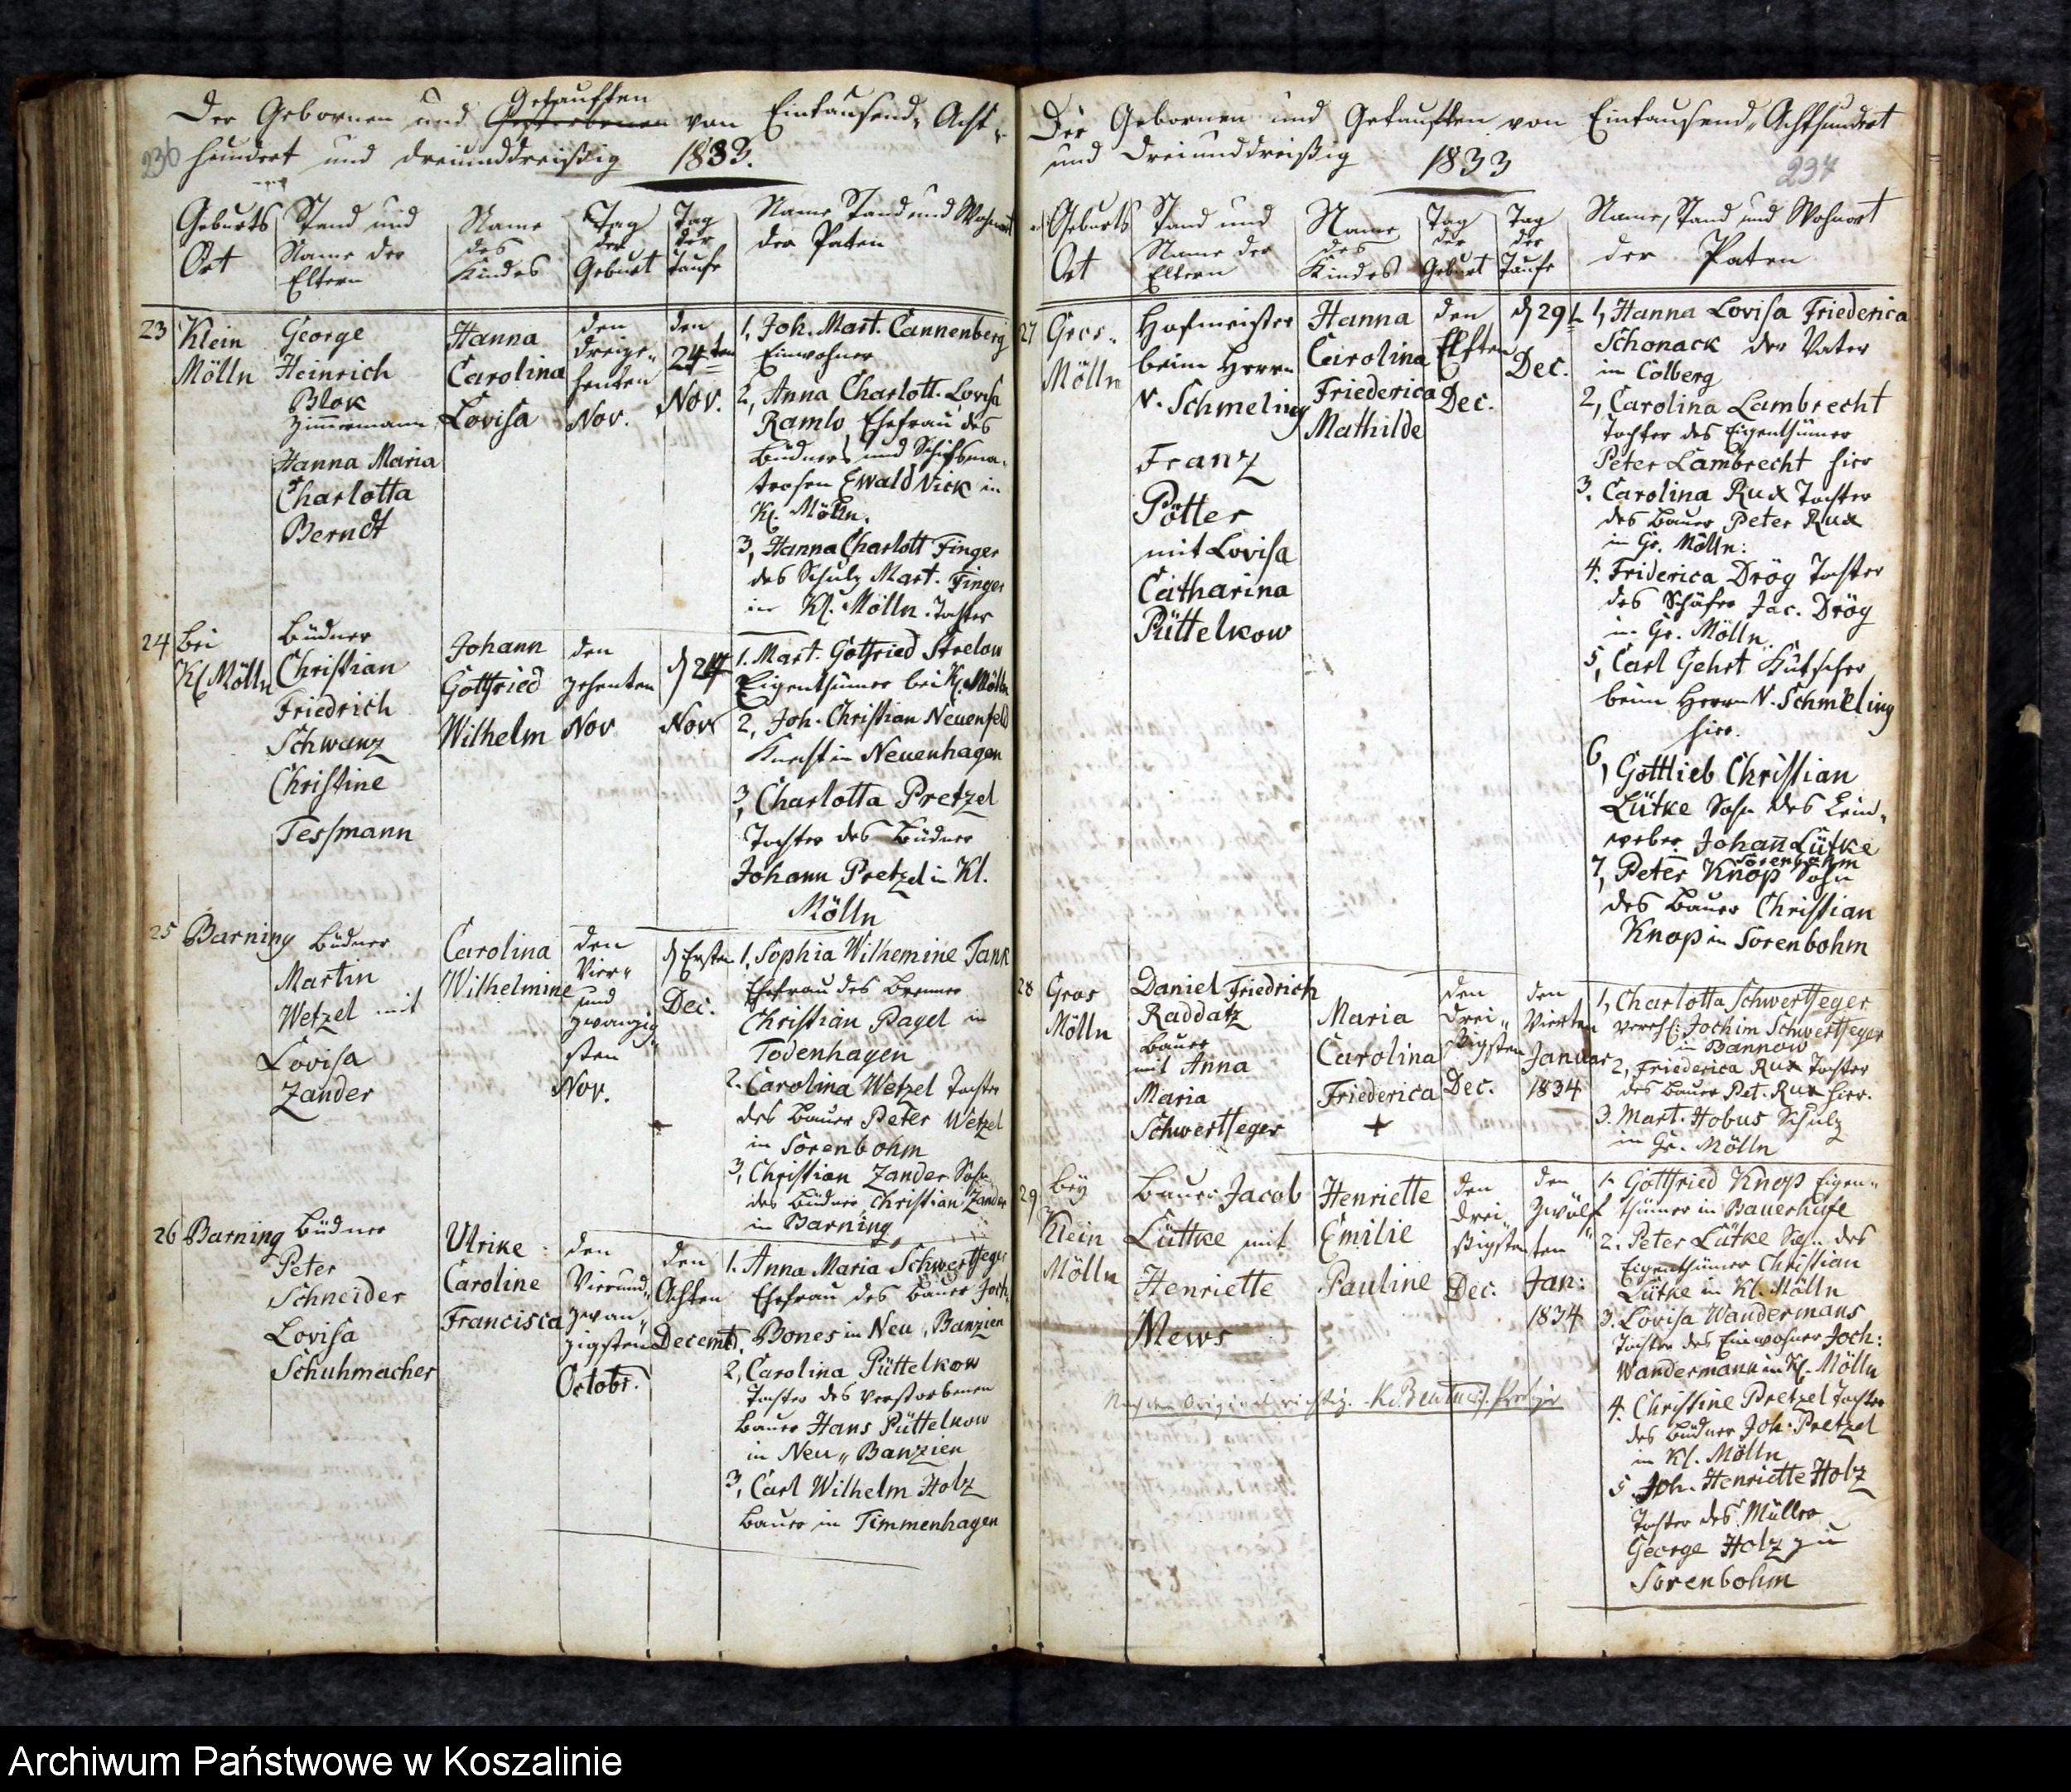 Der Gebornen und Getauften von Eintausend Acht-
hundert und dreiunddreißig 1833.
236
Geburts Ort
Stand und Name der Eltern
Name des Kindes
Tag der Geburt
Tag der Taufe
Name Stand und Wohnort der Paten
23
Klein
Mölln
George
Heinrich
Blok
Zimmermann
Hanna Maria
Charlotta
Berndt
Hanna
Carolina
Lovisa
den
dreize-
henten
Nov.
den
24ten
Nov.
1, Joh. Mart. Cannenberg
Einwohner
2, Anna Charlott. Lovisa
Ramlo, Ehefrau des
Büdners und Schifsma-
trosen Ewald Nick in
Kl. Mölln.
3, Hanna Charlott Finger
des Schulz Mart. Finger
in Kl. Mölln Tochter
24
bei
Kl Mölln
Büdner
Christian
Friedrich
Schwanz
Christine
Tessmann
Johann
Gottfried
Wilhelm
den
zehenten
Nov
Nov
1. Mart. Gottfried Strelow
Eigenthümer bei Kl. Mölln
2, Joh. Christian Neuenfeld
Knecht in Neuenhagen
3, Charlotta Pretzel
Tochter des Büdner
Johann Pretzel in Kl.
Mölln
25
Barning
Büdner
Martin
Wetzel mit
Lovisa
Zander
Carolina
Wilhelmine
den
Vier-
und
zwanzig-
sten
Nov.
d Ersten
Dec.
+
1, Sophia Wilhemine Tank
Ehefrau des Brenner
Christian Pagel in
Todenhagen
2. Carolina Wetzel Tochter
des Bauer Peter Wetzel
in Sorenbohm
3, Christian Zander Sohn
des Büdner Christian Zander
in Barning
26
Barning
Büdner
Peter
Schneider
Lovisa
Schuhmacher
Ulrike
Caroline
Francisca
den
Vierund-
zwan-
zigsten
Octobr.
den
Achten
Decemb.
1. Anna Maria Schwertfeger
Ehefrau des Bauer Joch.
Bones in Neu, Banzien
2, Carolina Püttelkow
Tochter des verstorbenen
Bauer Hans Püttelkow
in Neu, Banzien
3, Carl Wilhelm Holz
Bauer in Timmenhagen
Der Gebornen und Getauften von Eintausend, Achthundert
und dreiunddreißig 1833
237
Geburts Ort
Stand und Name der Eltern
Name des Kindes
Tag der Geburt
Tag der Taufe
Name, Stand und Wohnort der Paten
27
Gros-
Mölln
Hofmeister
beim Herrn
v. Schmeling
Franz
Pötter
mit Lovisa
Catharina
Püttelkow
Hanna
Carolina
Friederica
Mathilde
den
Elften
Dec.
d 29t
Dec.
1, Hanna Lovisa Friederica
Schonack der Vater
in Colberg
2, Carolina Lambrecht
Tochter des Eigenthümer
Peter Lambrecht hier
3. Carolina Rux Tochter
des Bauer Peter Rux
in Gr. Mölln:
4. Friderica Drög Tochter
des Schäfer Jac. Drög
in Gr. Mölln.
5, Carl Gehrt Kutscher
beim Herrn v. Schmeling
hier.
6, Gottlieb Christian
Lütke Sohn des Lein-
weber Johann Lütke
Sorenbohm
7, Peter Knop Sohn
des Bauer Christian
Knop in Sorenbohm
28
Gros
Mölln
Daniel Friedrich
Raddatz
Bauer
mit Anna
Maria
Schwertfeger
Maria
Carolina
Friederica
+
den
drei-
ßigsten
Dec.
den
Vierten
Januar
1834
1, Charlotta Schwertfeger
verehl: Jochim Schwertfeger
in Bannow
2, Friederica Rux Tochter
des Bauer Pet. Rux hier.
3. Mart. Hobus Schulz
in Gr. Mölln
29
bey
Klein
Mölln
Bauer Jacob
Lüttke mit
Henriette
Mews
Henriette
Emilie
Pauline
den
drei-
ßigsten
Dec.
den
zwölf-
ten
Jan:
1834
1. Gottfried Knop Eigen-
thümer in Bauerhufe
2. Peter Lütke Sohn des
Eigenthümer Christian
Lütke in Kl. Mölln
3. Lovisa Wandermans
Tochter des Einwohner Joch:
Wandermann in Kl. Mölln
4. Christine Pretzel Tochter
des Büdner Joh. Pretzel
in Kl. Mölln
5. Joh. Henriette Holz
Tochter des Müller
George Holz zu
Sorenbohm
Nach dem Original richtig.
Archiwum Państwowe w Koszalinie